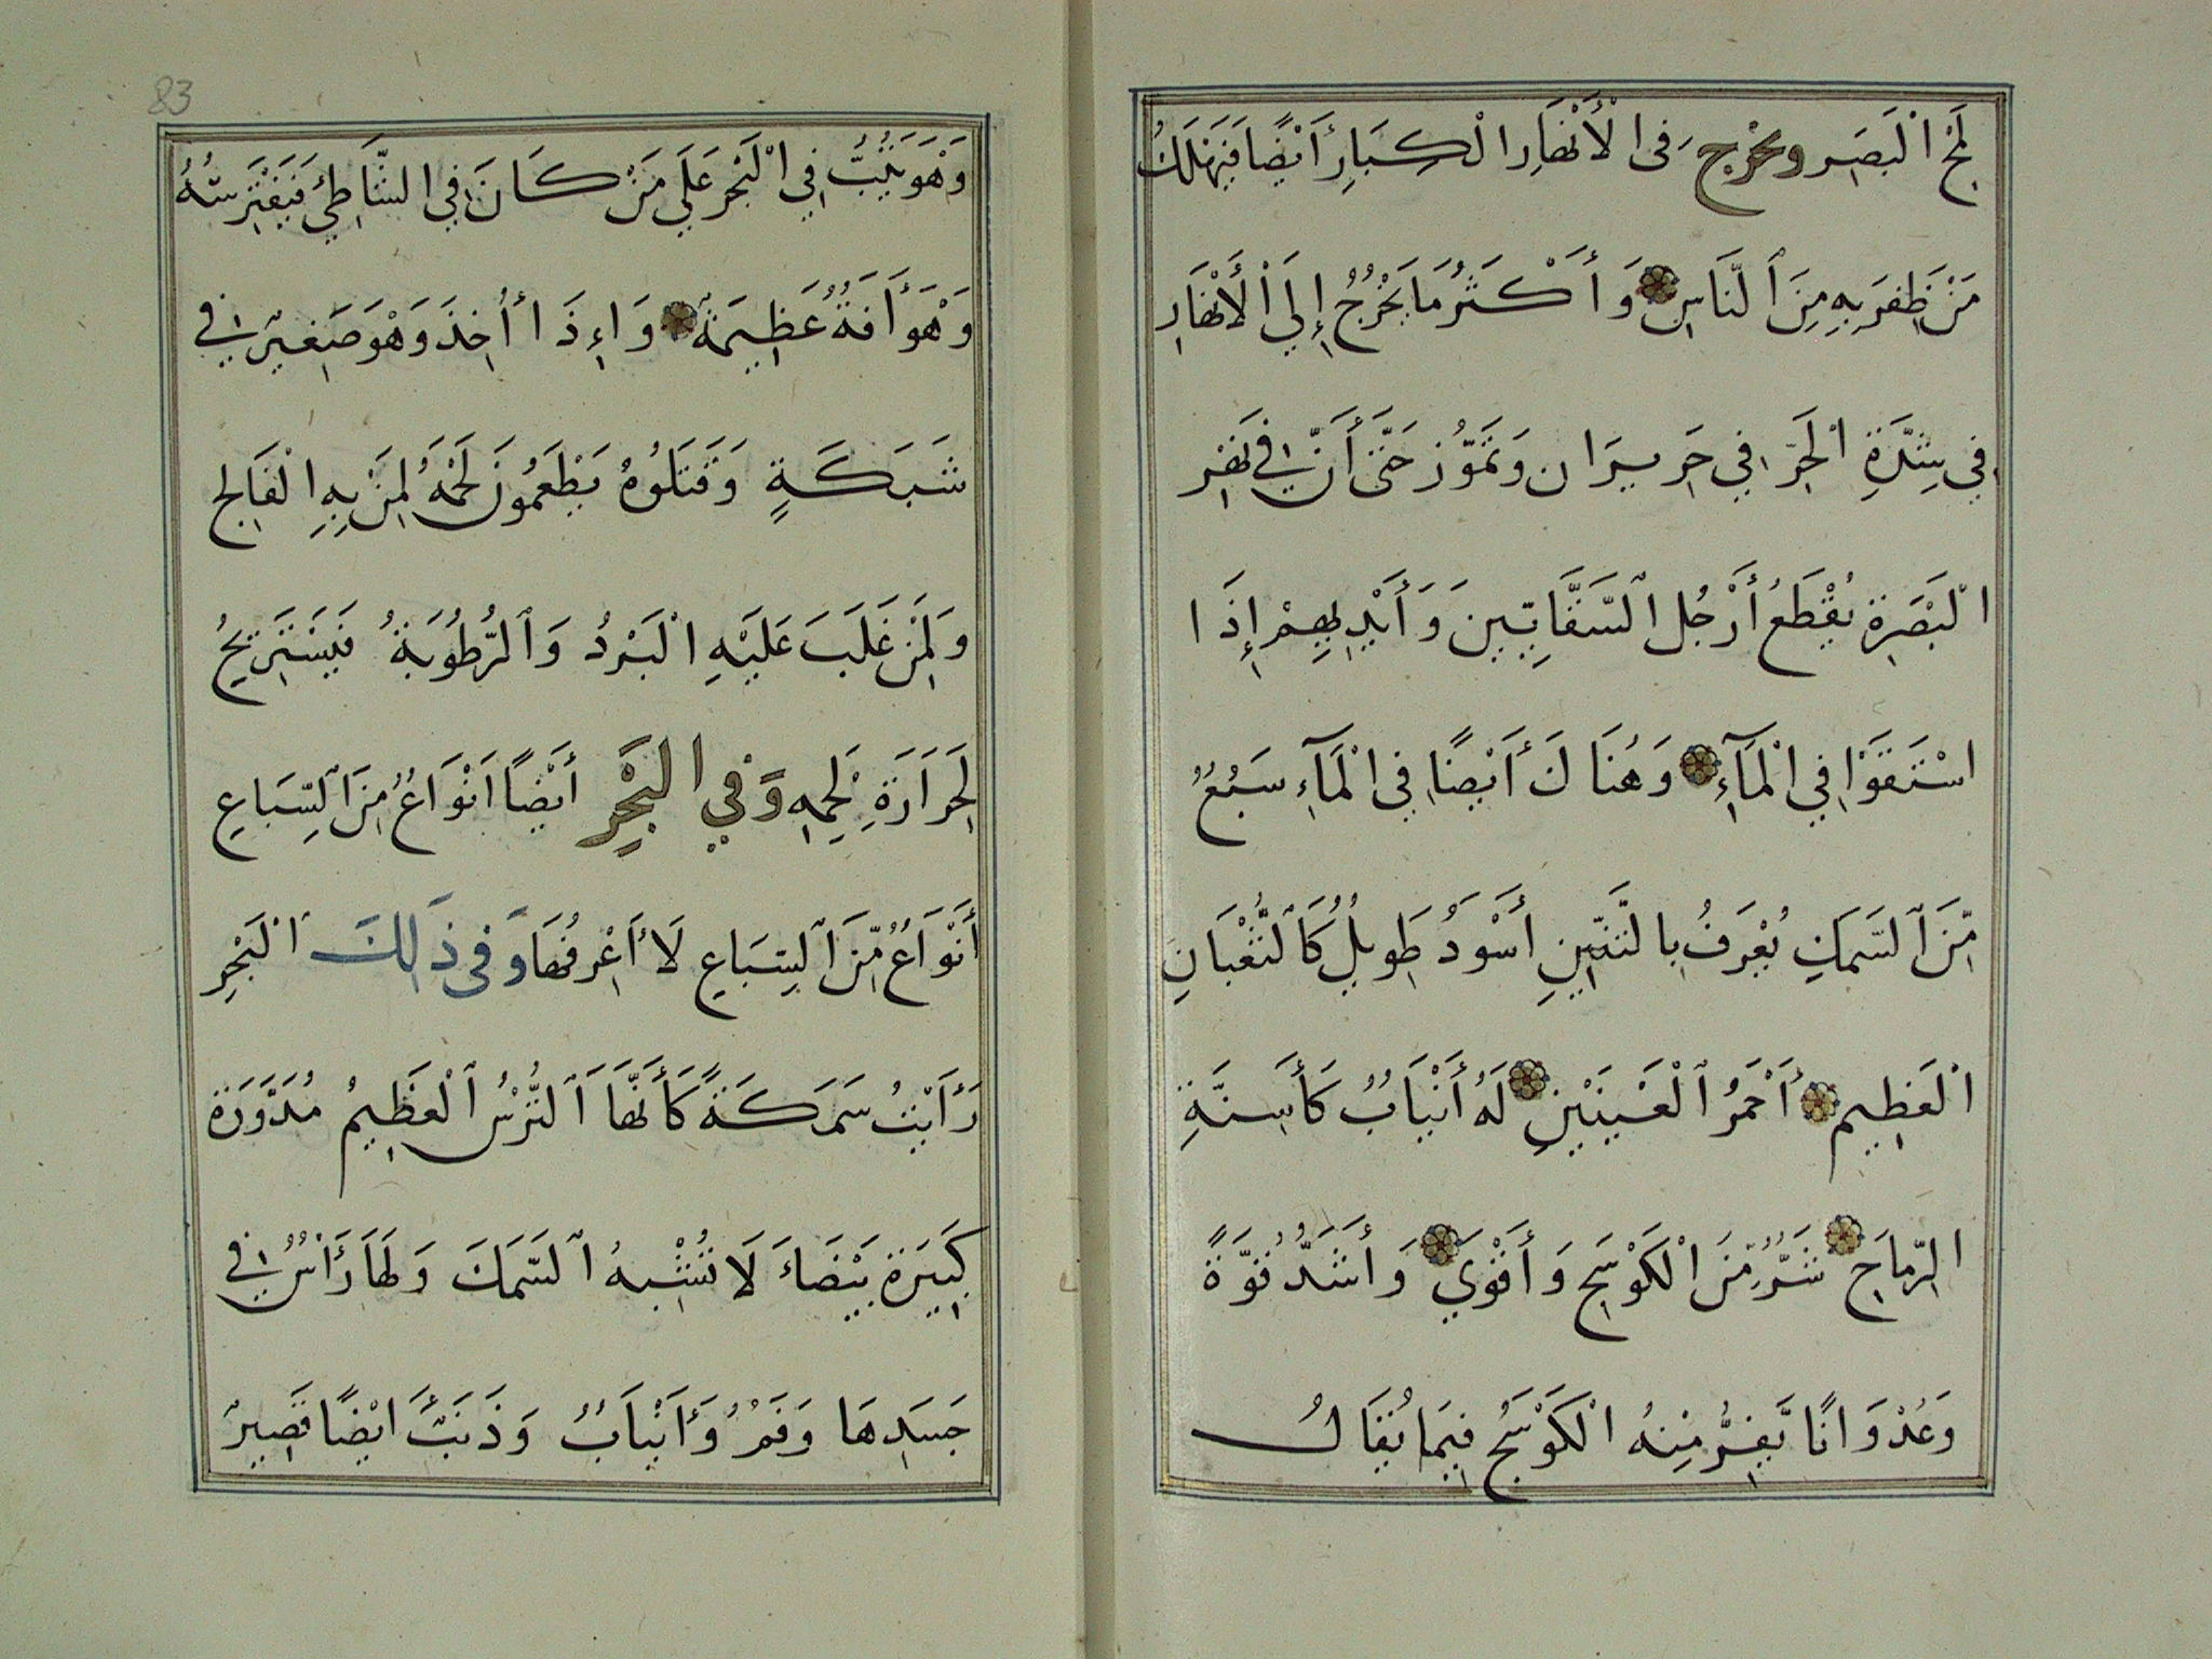 لَمْحِ الْبَصَرِ ويَخْرُجُ فى الْأَنْهَارِ الْكِبَارِ أَيْضًا فَيَهْلَكُ
مَنْ ظَفَرَ بِهِ مِنَ ٱلنَّاسِ وَأَكْثَرُ مَا يَخْرُجُ إِلَي ٱلْأَنْهَارِ
فِي شِدَّةِ الْحَرِّ فِي حَزِيرَان وَتَمُّوز حَتَّى أَنَّ فِي نَهْرِ
الْبَصْرَةِ يُقْطَعُ أَرْجُل ٱلسَّقَّايِينَ وَأَيْدِيهِمْ إِذَا
اسْتَقَوْا فِي الْمَآءِ وَهُنَاكَ أَيْضًا فِي الْمَآءِ سَبُعٌ
مِّنَ ٱلسَّمَكِ يُعْرَفُ بِالتِّنِّينِ أَسْوَدُ طَوِيلٌ كَٱلثُّعْبَانِ
الْعَظِيمِ أَحْمَرُ ٱلْعَيْنَيْنِ لَهُ أَنْيَابٌ كَأَسِنَّةِ
الرِّمَاحِ شَرٌّ مِّنَ الْكَوْسَجِ وَأَقْوَي وَأَشَدُّ قُوَّةً
وَعُدْوَانًا يَّفِرُّ مِنْهُ الْكَوْسَجُ فِيمَا يُقَالُ
وَهْوَ يَثِبُ فِي الْبَحْرِ عَلَي مَنْ كَانَ فِي الشَّاطِئِ فَيَفْتَرِسُهُ
وَهْوَ أَفَةٌ عَظِيمَةٌ وَإِذَا أُخِذَ وَهْوَ صَغِيرٌ فِي
شَبَكَةٍ وَقَتَلُوهُ يَطْعَمُونَ لَحْمَهُ لِمَنْ بِهِ الْفَالِج
وَلِمَنْ غَلَبَ عَلَيْهِ الْبَرْدُ وَٱلرُّطُوبَةُ فَيَسْتَرِيحُ
لِحَرَارَةِ لَحْمِهِ وَفِي الْبَحْرِ أَيْضًا اَنْوَاعٌ مِنَ ٱلسِّبَاعِ
أَنْوَاعٌ مِّنَ ٱلسِّبَاعِ لَا أَعْرِفُهَا وَفى ذَلِكَ الْبَحْرِ
رَأَيْتُ سَمَكَةً كَأَنَّهَا ٱلتُّرْسُ ٱلْعَظِيمُ مُدَوَّرَة
كَبِيرَة بَيْضَاءَ لَا تُشْبِهُ ٱلسَّمَكَ وَلَهَا رَأْسٌ فِي
جَسَدِهَا وَفَمٌ وَأَنْيَابٌ وَذَنَبٌ اَيْضًا قَصِيرٌ
83